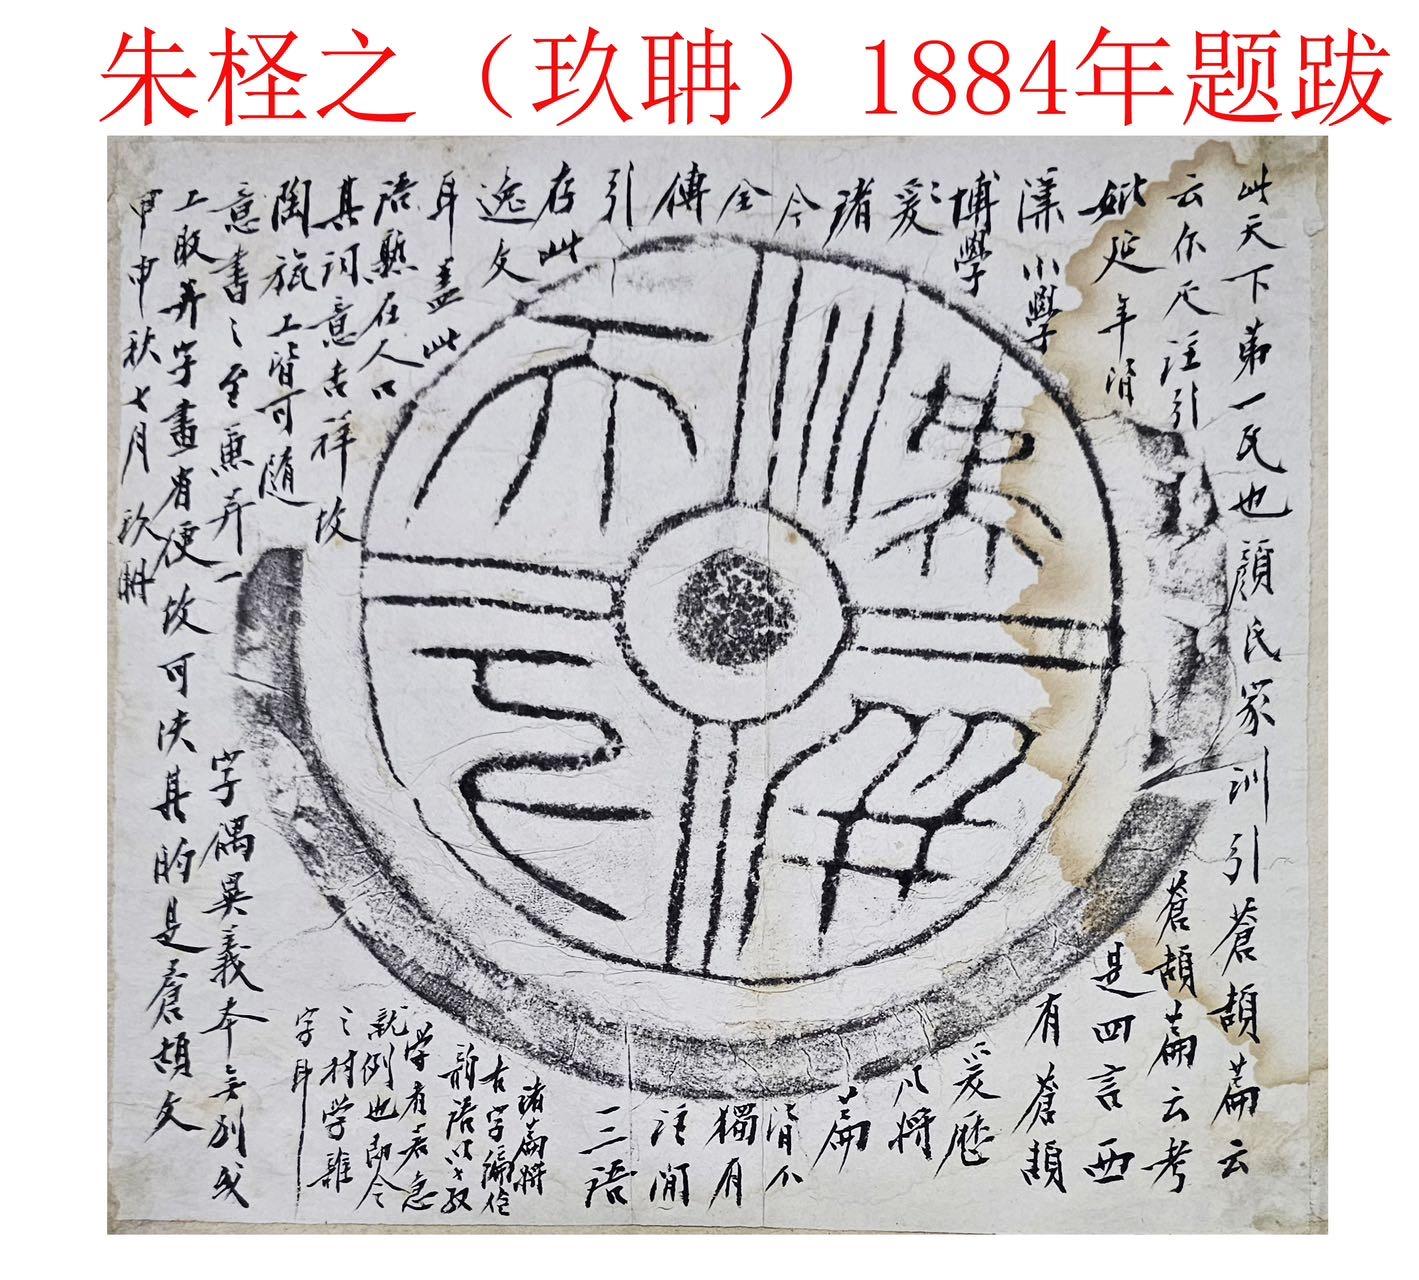 朱柽之（玖聃）1884年题跋
此天下第一瓦也顏氏家訓引蒼頡篇云
云尔疋注引蒼頡篇云考
妣延年皆是四言西
漢小學有蒼頡
博學爰歷
凡將
諸篇
今皆不
全獨有
傳注間
引三語
存此
逸文
耳蓋此
語熟在人口
其詞意吉祥故
陶瓬工皆可隨
意書之至弄一
字偶異義本無別或
工取弄字畫有便故可决其的是蒼頡文
甲申秋七月玖聃
諸篇將
古字編
韻語以教
学者若急
就例也即今
之村学雜
字耳